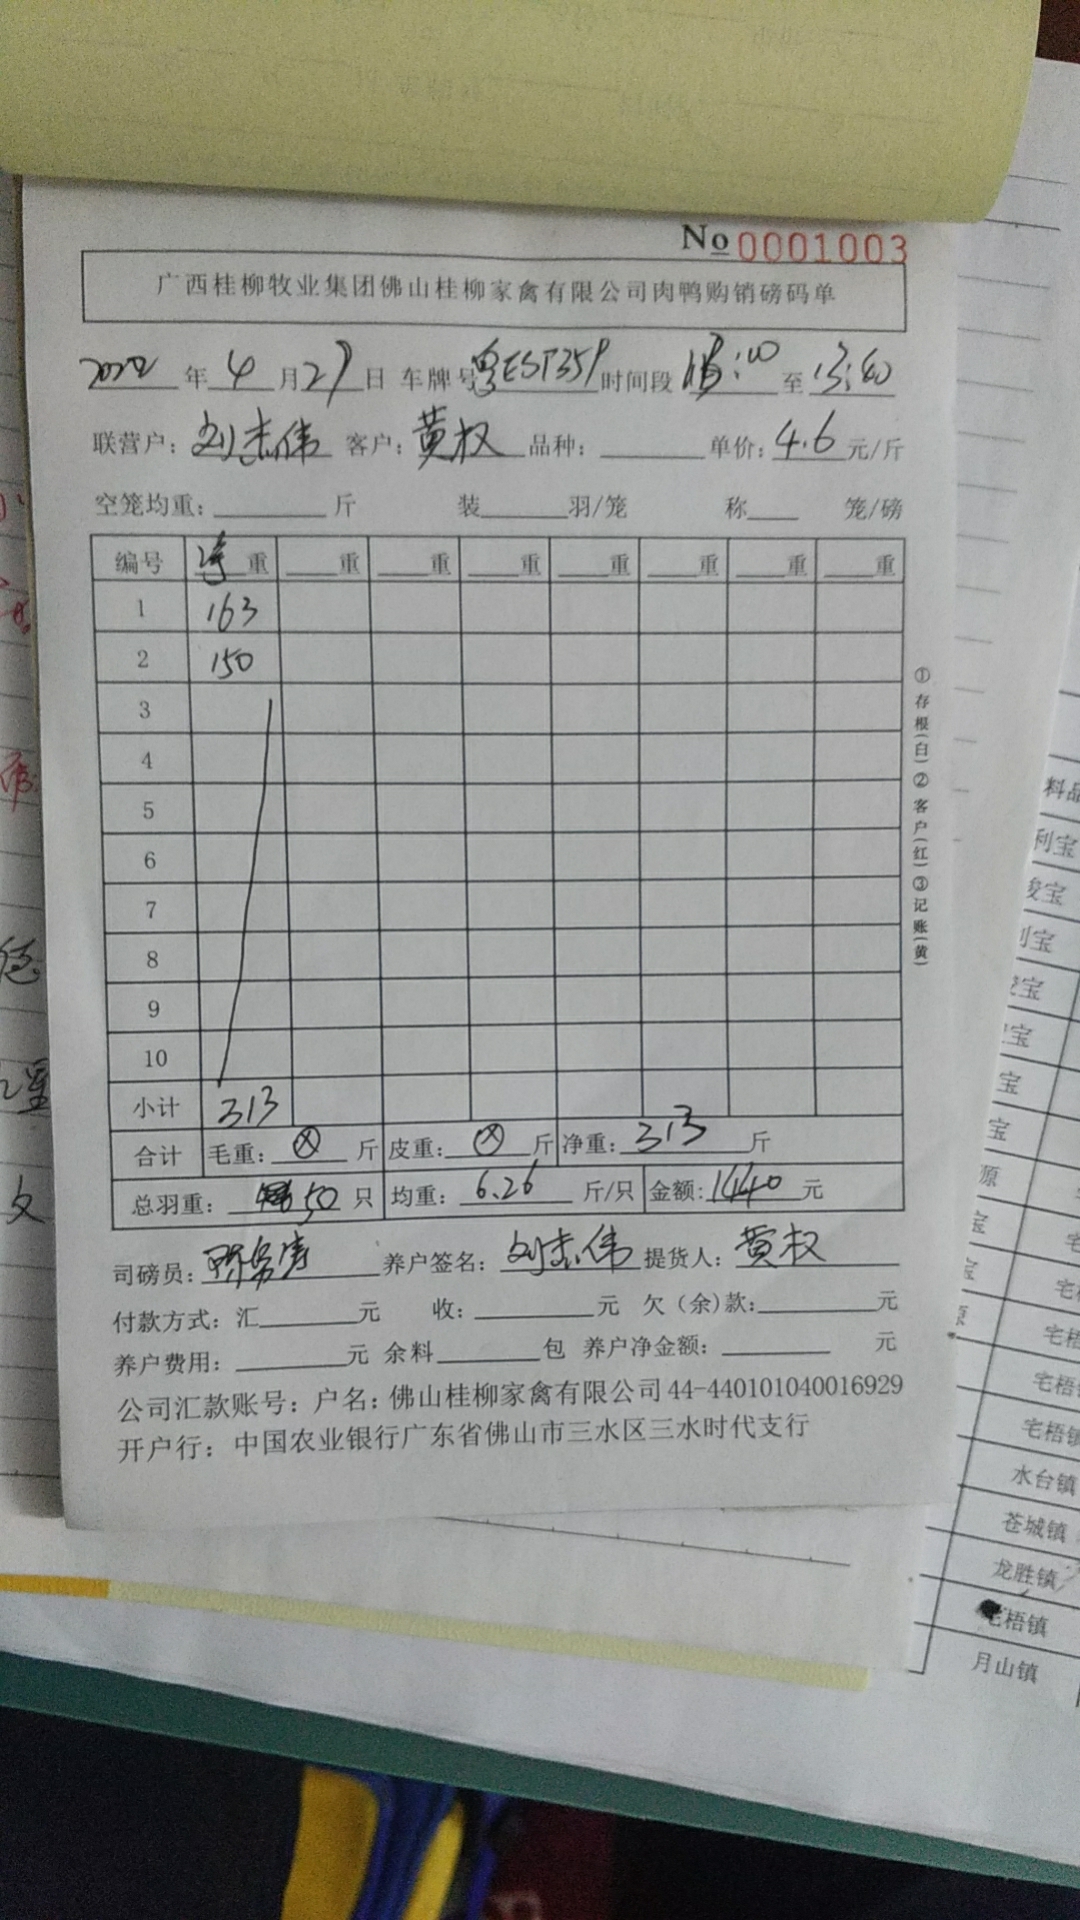 No 0001003
广西桂柳牧业集团佛山桂柳家禽有限公司肉鸭购销磅码单
2022 年 4 月 29 日 车牌号 粤EST359 时间段 :00 至 13:40
联营户: 刘志伟 客户: 黄权 品种: 单价: 4.6 元/斤
空笼均重: 斤 装 羽/笼 称 笼/磅
编号 净重 重 重 重 重 重 重 重
1 163
2 150
3
4
5
6
7
8
9
10
小计 313
合计 毛重: ⊗ 斤 皮重: ⊗ 斤 净重: 313 斤
总羽重: 50 只 均重: 6.26 斤/只 金额: 1440 元
司磅员: 养户签名: 刘志伟 提货人: 黄权
付款方式: 汇 元 收: 元 欠(余)款: 元
养户费用: 元 余料 包 养户净金额: 元
公司汇款账号: 户名: 佛山桂柳家禽有限公司 44-440101040016929
开户行: 中国农业银行广东省佛山市三水区三水时代支行
①存根(白)②客户(红)③记账(黄)
料品
利宝
骏宝
利宝
宝
宝
宝
宝
源
宝
宝
源
宅梧
宅梧镇
水台镇
苍城镇
龙胜镇
宅梧镇
月山镇